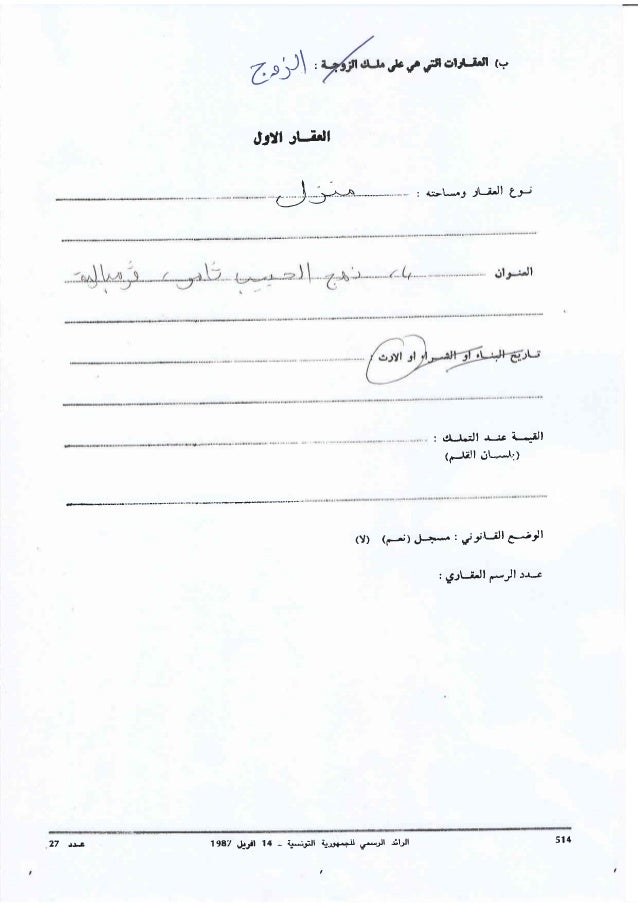 ب) العقارات التي هي على ملك الزوجة : الزوج
العقار الاول
نوع العقار ومساحته : منزل
العنوان 4، نهج الحبيب ثامر، قرمبالية
تاريخ البناء او الشراء او الارث :
القيمة عند التملك :
(بلسان القلم)
الوضع القانوني : مسجل (نعم) (لا)
عدد الرسم العقاري :
514 الرائد الرسمي للجمهورية التونسية – 14 افريل 1987 عدد 27